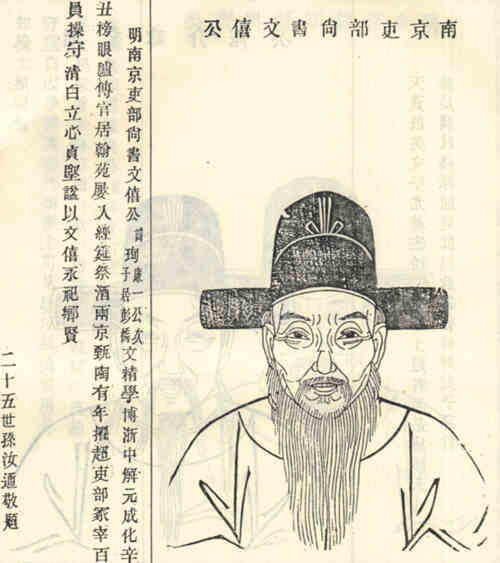 南京吏部尚書文僖公
明南京吏部尚書文僖公諱珣康一公次子居彭橋文精學博浙中解元成化辛
丑榜眼臚傳官居翰苑屢入經筵祭酒兩京甄陶有年擢超吏部冢宰百
員操守清白立心貞堅諡以文僖永祀鄉賢
二十五世孫汝道敬題